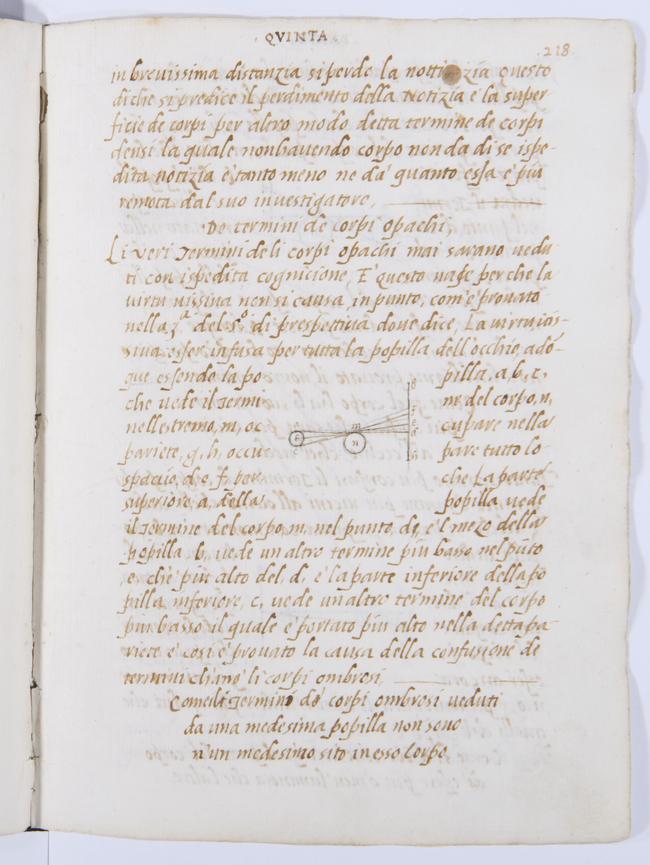 QVINTA
218.
in breuissima distanzia si perde la nottizia questo
di che si predice il perdimento della Notizia e' la super
ficie de corpi per altro modo detta termine de corpi
densi la quale non hauendo corpo non da di se ispe
dita notizia e' tanto meno ne da' quanto essa e' piu
remota dal suo inuestigatore,
De termini de corpi opachi
Li veri Termini deli corpi opachi mai sarano uedu
ti con ispedita cognicione, E' questo nasce per che la
virtu uissiua non si causa in punto, com'e' prouato
nella 3ª del 5º di prespettiua doue dice, La virtu uis-
siua esser infusa per tutta la popilla dell'occhio adō-
que essendo la po pilla, a, b, c,
che vede il Termi ne del corpo, n,
nell'estremo, m, oc cupare nella
pariete, g, h, occu pare tutto lo
spacio, d, e, f, per che La parte
superiore, a, della popilla vede
il Termine del corpo, m, nel punto, d, e' l mezo della
popilla b, vede un altro termine piu basso nel pūto
e, che piu alto del, d, e' la parte inferiore della po
pilla inferiore, c, vede un altro termine del corpo
piu basso il quale e' portato piu alto nella detta pa
riete e' cosi e' prouato la causa della confusione de
termini ch'ano' li corpi ombrosi
Come li Termini de' corpi ombrosi ueduti
da una medesima popilla non sono
n'un medesimo sito in esso Corpo,